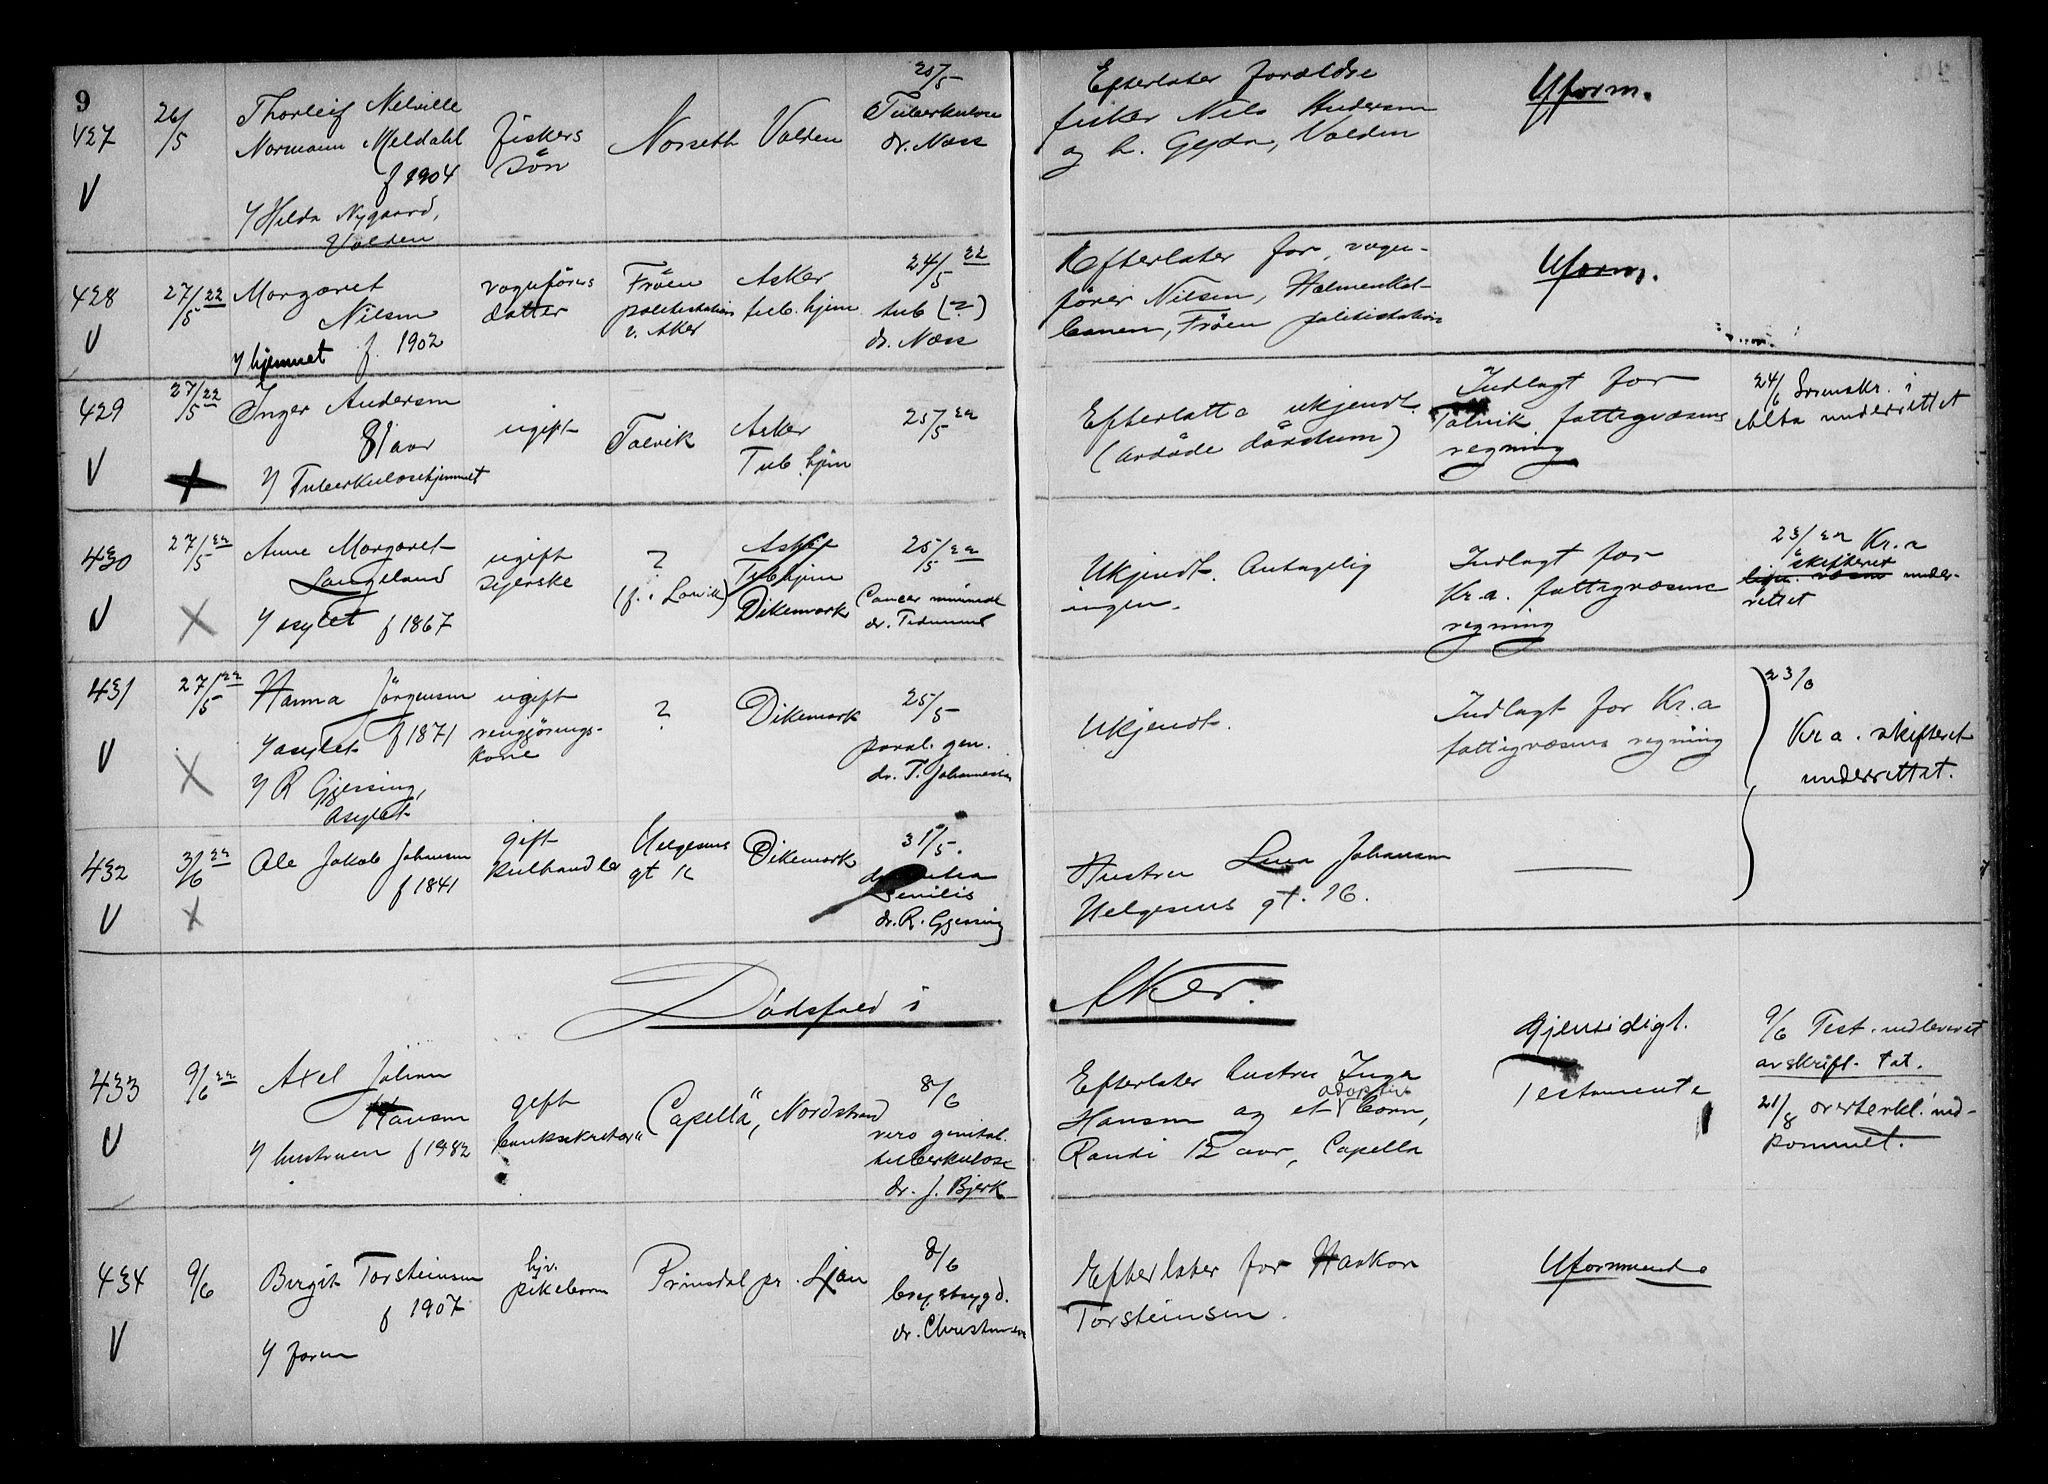 9
427
26/5
Thorleif Melville
Normann Meldahl
f 1904
v/ Helda Nygaard,
Valden
fiskers
søn
Norseth
Valden
25/5
Tuberkulose
dr. Næss
Efterlater forældre
fisker Nils Andersen
og h. Gyda, Valden
Uform.
V
428
27/5 22
Margaret
Nilsen
f. 1902
v/ hjemmet
vognførers
datter
Frøen
politistation
v. Aker
Asker
tub. hjem
24/5 22
tub (?)
dr. Næss
Efterlater far, vogn-
fører Nilsen, Holmenkol-
banen, Frøen politistation
Uform.
V
429
27/5 22
Inger Andersen
81 aar
v/ Tuberkulosehjemmet
ugift
Talvik
Asker
Tub. hjem
25/5 22
Efterlatte ukjendt.
Indlagt for
Talvik fattigvæsens
regning
24/6 Sorenskr. i
Alta underrettet
V
430
27/5 22
Anne Margaret
Langeland
v/ asylet f 1867
ugift
syerske
?
Asker
Tub hjem
Dikemark
25/5 22
Cancer
dr.
Ukjendt. Antagelig
ingen.
Indlagt for
Kr.a. fattigvæsens
regning
23/6 22 Kr.a
skifteret
under-
rettet
V
431
27/5 22
Hanna Jørgensen
v/ asylet f 1871
v/ R Gjessing,
asylet
ugift
rengjørings-
kone
?
Dikemark
25/5
paral. gen.
dr. T. Johannessen
Ukjendt.
Indlagt for Kr.a
fattigvæsens regning
23/6
Kr.a. skifteret
underrettet.
V
432
3/6 22
Ole Jakob Johansen
f 1841
gift
kulhandler
Helgesens
gt 16
Dikemark
31/5.
senilis
dr. R. Gjessing
Hustru Lina Johansen
Helgesens gt. 16.
V
Dødsfald i Aker.
433
9/6 22
Axel Johan
Hansen
v/ hustruen f 1882
gift
banksekretær
"Capella", Nordstrand
8/6
uro genital.
tuberkulose
dr. J. Bjerk
Efterlater hustru Inga
adoptiv
Hansen og et barn,
Randi 12 aar, Capella
Gjensidigt.
Testamente
9/6 Test. indleveret
avskrift tat.
21/8 overterkl. ind-
kommet.
V
434
9/6
Birgit Torsteinsen
f 1907
v/ faren
hjv.
pikebarn
Prinsdal pr. Ljan
8/6
brystsygd.
dr. Christensen
Efterlater far Haakon
Torsteinsen.
Uformuende
V